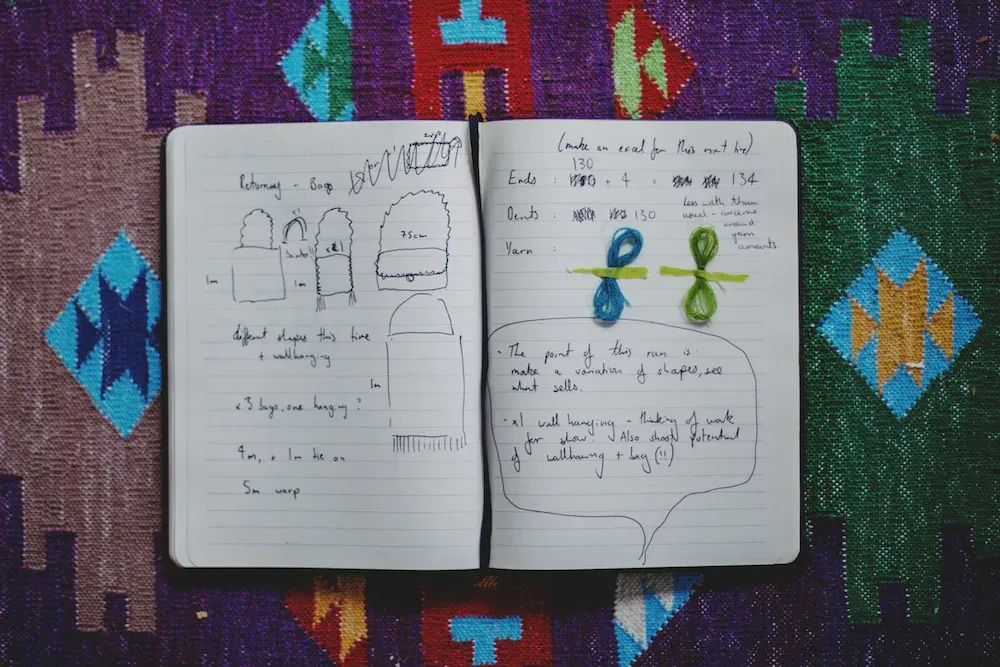 Returning - Bags
x1
1m
1m
x1
75cm
different shapes this time
+ wallhanging
1m
x3 bags, one hanging?
4m, + 1m tie on
5m warp
(make an excel for this next time)
130
Ends : + 4 = 134
Dents : 130
less width than
usual - concerns
around
yarn
amounts
Yarn :
- The point of this run is
make a variation of shapes, see
what sells.
- x1 wall hanging - thinking of work
for show! Also shoot potential
of wallhanging + bag (!!)